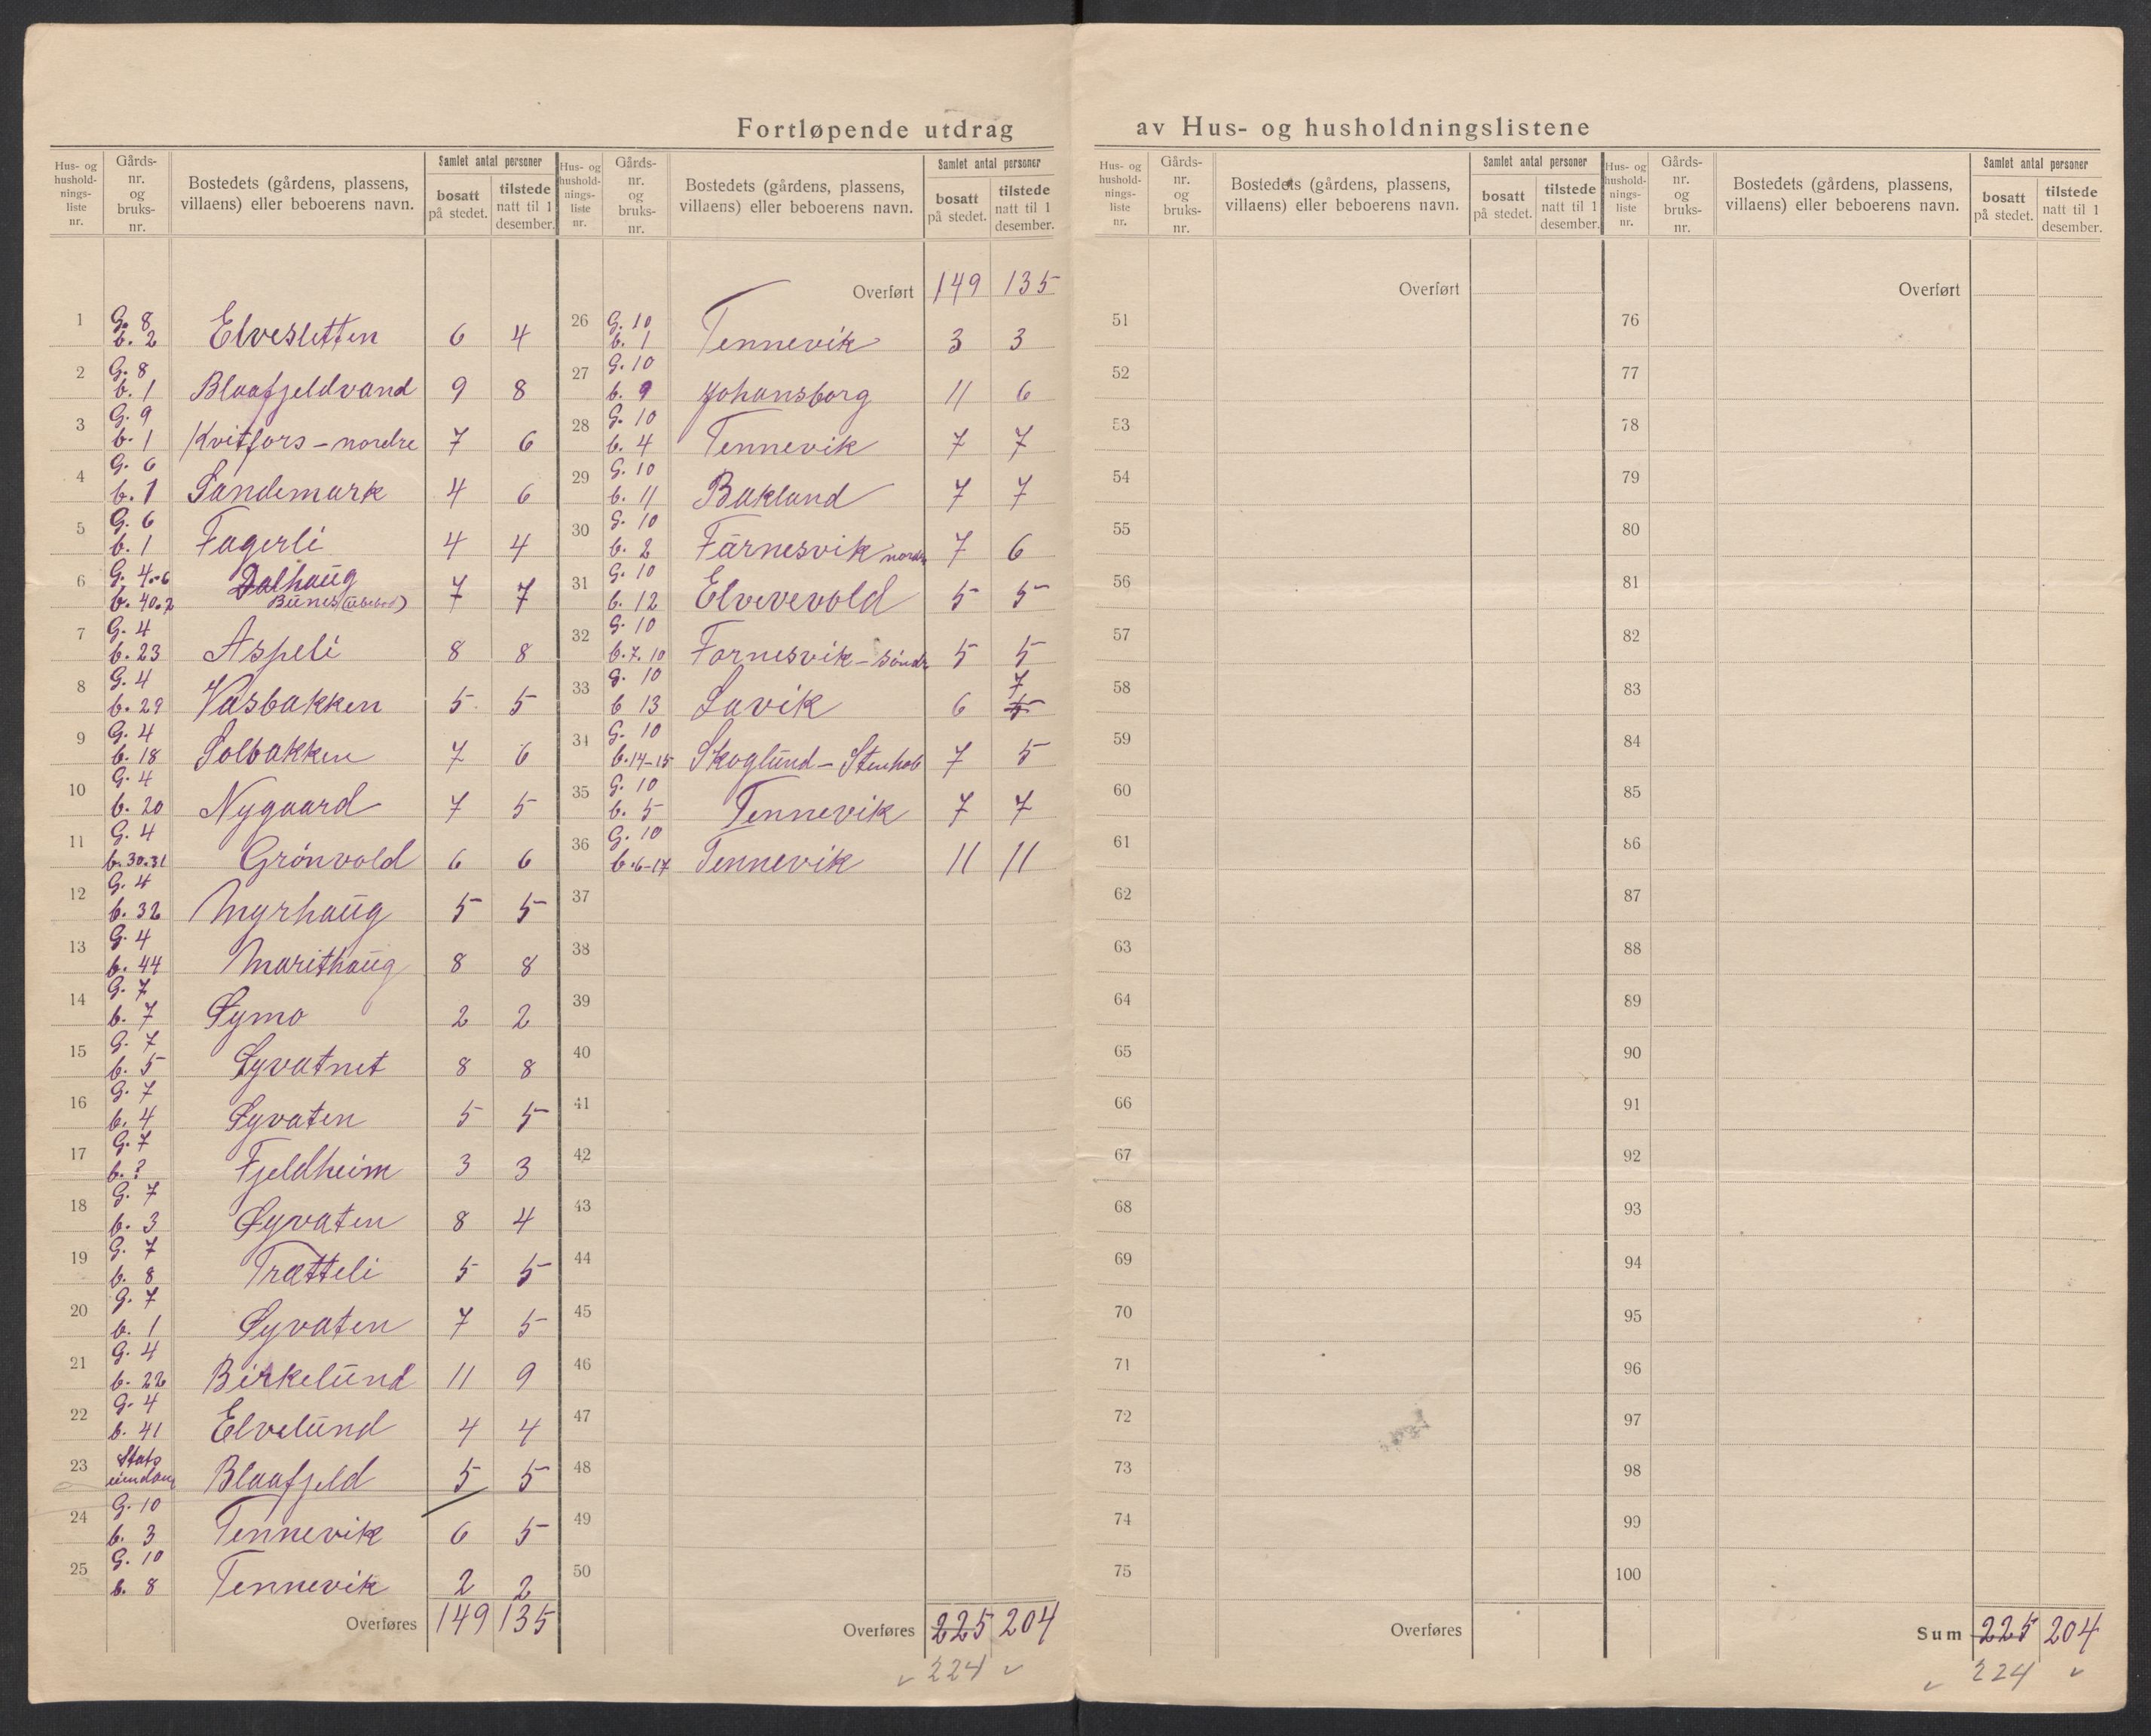 Fortløpende utdrag av Hus- og husholdningslistene
Hus- og husholdnings-liste nr. | Gårds-nr. og bruks-nr. | Bostedets (gårdens, plassens, villaens) eller beboerens navn. | Samlet antal personer | bosatt på stedet. | tilstede natt til 1 desember.
1 G. 8 b. 2 Elvesletten 6 4
2 G. 8 b. 1 Blaafjeldvand 9 8
3 G. 9 b. 1 Kvitfors - nordre 7 6
4 G. 6 b. 1 Sandemark 4 6
5 G. 6 b. 1 Fagerli 4 4
6 G. 4.-6 b. 40.2 Dalhaug
Bunes 7 7
7 G. 4 b. 23 Aspeli 8 8
8 G. 4 b. 29 Vasbakken 5 5
9 G. 4 b. 18 Solbakken 7 6
10 G. 4 b. 20 Nygaard 7 5
11 G. 4 b. 30.31 Grónvold 6 6
12 G. 4 b. 32 Myrhaug 5 5
13 G. 4 b. 44 Marithaug 8 8
14 G. 7 b. 7 Øymo 2 2
15 G. 7 b. 5 Øyvatnet 8 8
16 G. 7 b. 4 Øyvaten 5 5
17 G. 7 b. ? Fjeldheim 3 3
18 G. 7 b. 3 Øyvaten 8 4
19 G. 7 b. 8 Trætteli 5 5
20 G. 7 b. 1 Øyvaten 7 5
21 G. 4 b. 22 Birkelund 11 9
22 G. 4 b. 41 Elvelund 4 4
23 Stats eiendom Blaafjeld 5 5
24 G. 10 b. 3 Tennevik 6 5
25 G. 10 b. 8 Tennevik 2 2
Overføres 149 135
Hus- og husholdnings-liste nr. | Gårds-nr. og bruks-nr. | Bostedets (gårdens, plassens, villaens) eller beboerens navn. | Samlet antal personer | bosatt på stedet. | tilstede natt til 1 desember.
Overført 149 135
26 G. 10 b. 1 Tennevik 3 3
27 G. 10 b. 9 Johansborg 11 6
28 G. 10 b. 4 Tennevik 7 7
29 G. 10 b. 11 Bakland 7 7
30 G. 10 b. 2 Farnesvik nordre 7 6
31 G. 10 b. 12 Elvevevold 5 5
32 G. 10 b. 7. 10 Fornesvik - sóndr 5 5
33 G. 10 b 13 Lavik 6 5 7
34 G. 10 b. 14-15 Skoglund - Stenhol 7 5
35 G. 10 b. 5 Tennevik 7 7
36 G. 10 b. 6-17 Tennevik 11 11
37
38
39
40
41
42
43
44
45
46
47
48
49
50
Overføres 225 204
224
Hus- og husholdnings-liste nr. | Gårds-nr. og bruks-nr. | Bostedets (gårdens, plassens, villaens) eller beboerens navn. | Samlet antal personer | bosatt på stedet. | tilstede natt til 1 desember.
Overført
51
52
53
54
55
56
57
58
59
60
61
62
63
64
65
66
67
68
69
70
71
72
73
74
75
Overføres
Hus- og husholdnings-liste nr. | Gårds-nr. og bruks-nr. | Bostedets (gårdens, plassens, villaens) eller beboerens navn. | Samlet antal personer | bosatt på stedet. | tilstede natt til 1 desember.
Overført
76
77
78
79
80
81
82
83
84
85
86
87
88
89
90
91
92
93
94
95
96
97
98
99
100
Sum 225 204
224